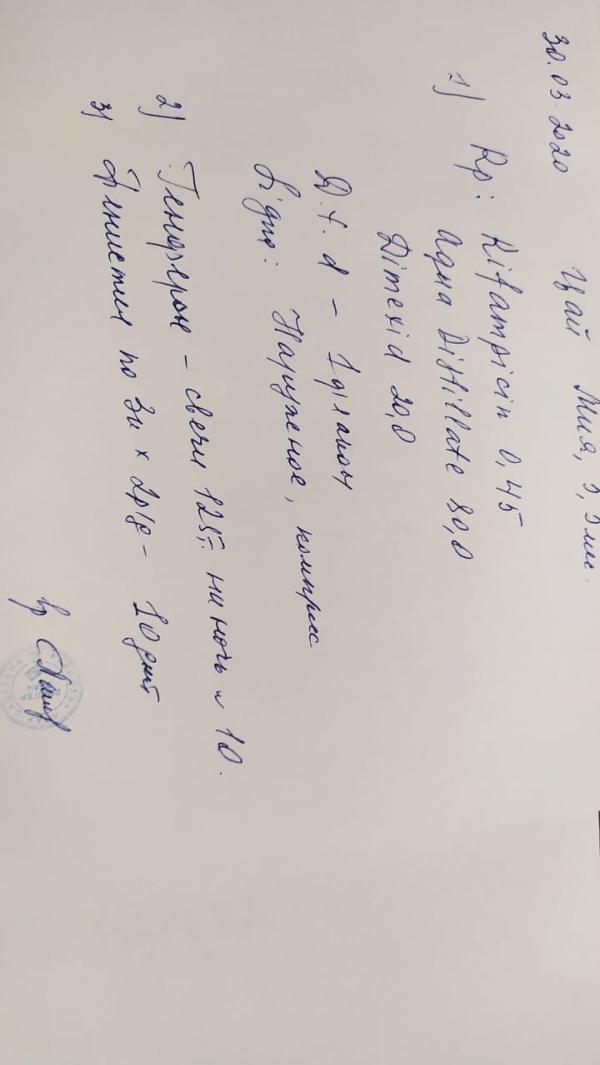 30.03.2020 Цай Мия, 3,5 мес.
1) Rp: Rifampicin 0,45
Aqua Distillate 80,0
Dimexid 20,0
D.t.d - 1 флакон
Signa: Наружное, компресс
2) Генферон - свечи 125т. на ночь N 10.
3) Фенистил по 3к х 2р/д - 10 дней
вр